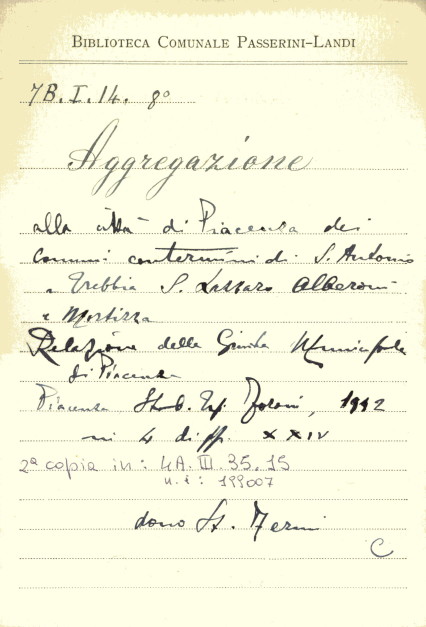 BIBLIOTECA COMUNALE PASSERINI-LANDI
7B. I. 14. 8º
Aggregazione
alla città di Piacenza dei
comuni contermini di S. Antonio
a Trebbia S. Lazzaro Alberoni
e Mortizza
Relazione della Giunta Municipale
di Piacenza
Piacenza Stab. Tip.
in 4 di pp. XXIV
2ª copia in: 4A. III. 35. 15
n. i: 199007
dono St.
C